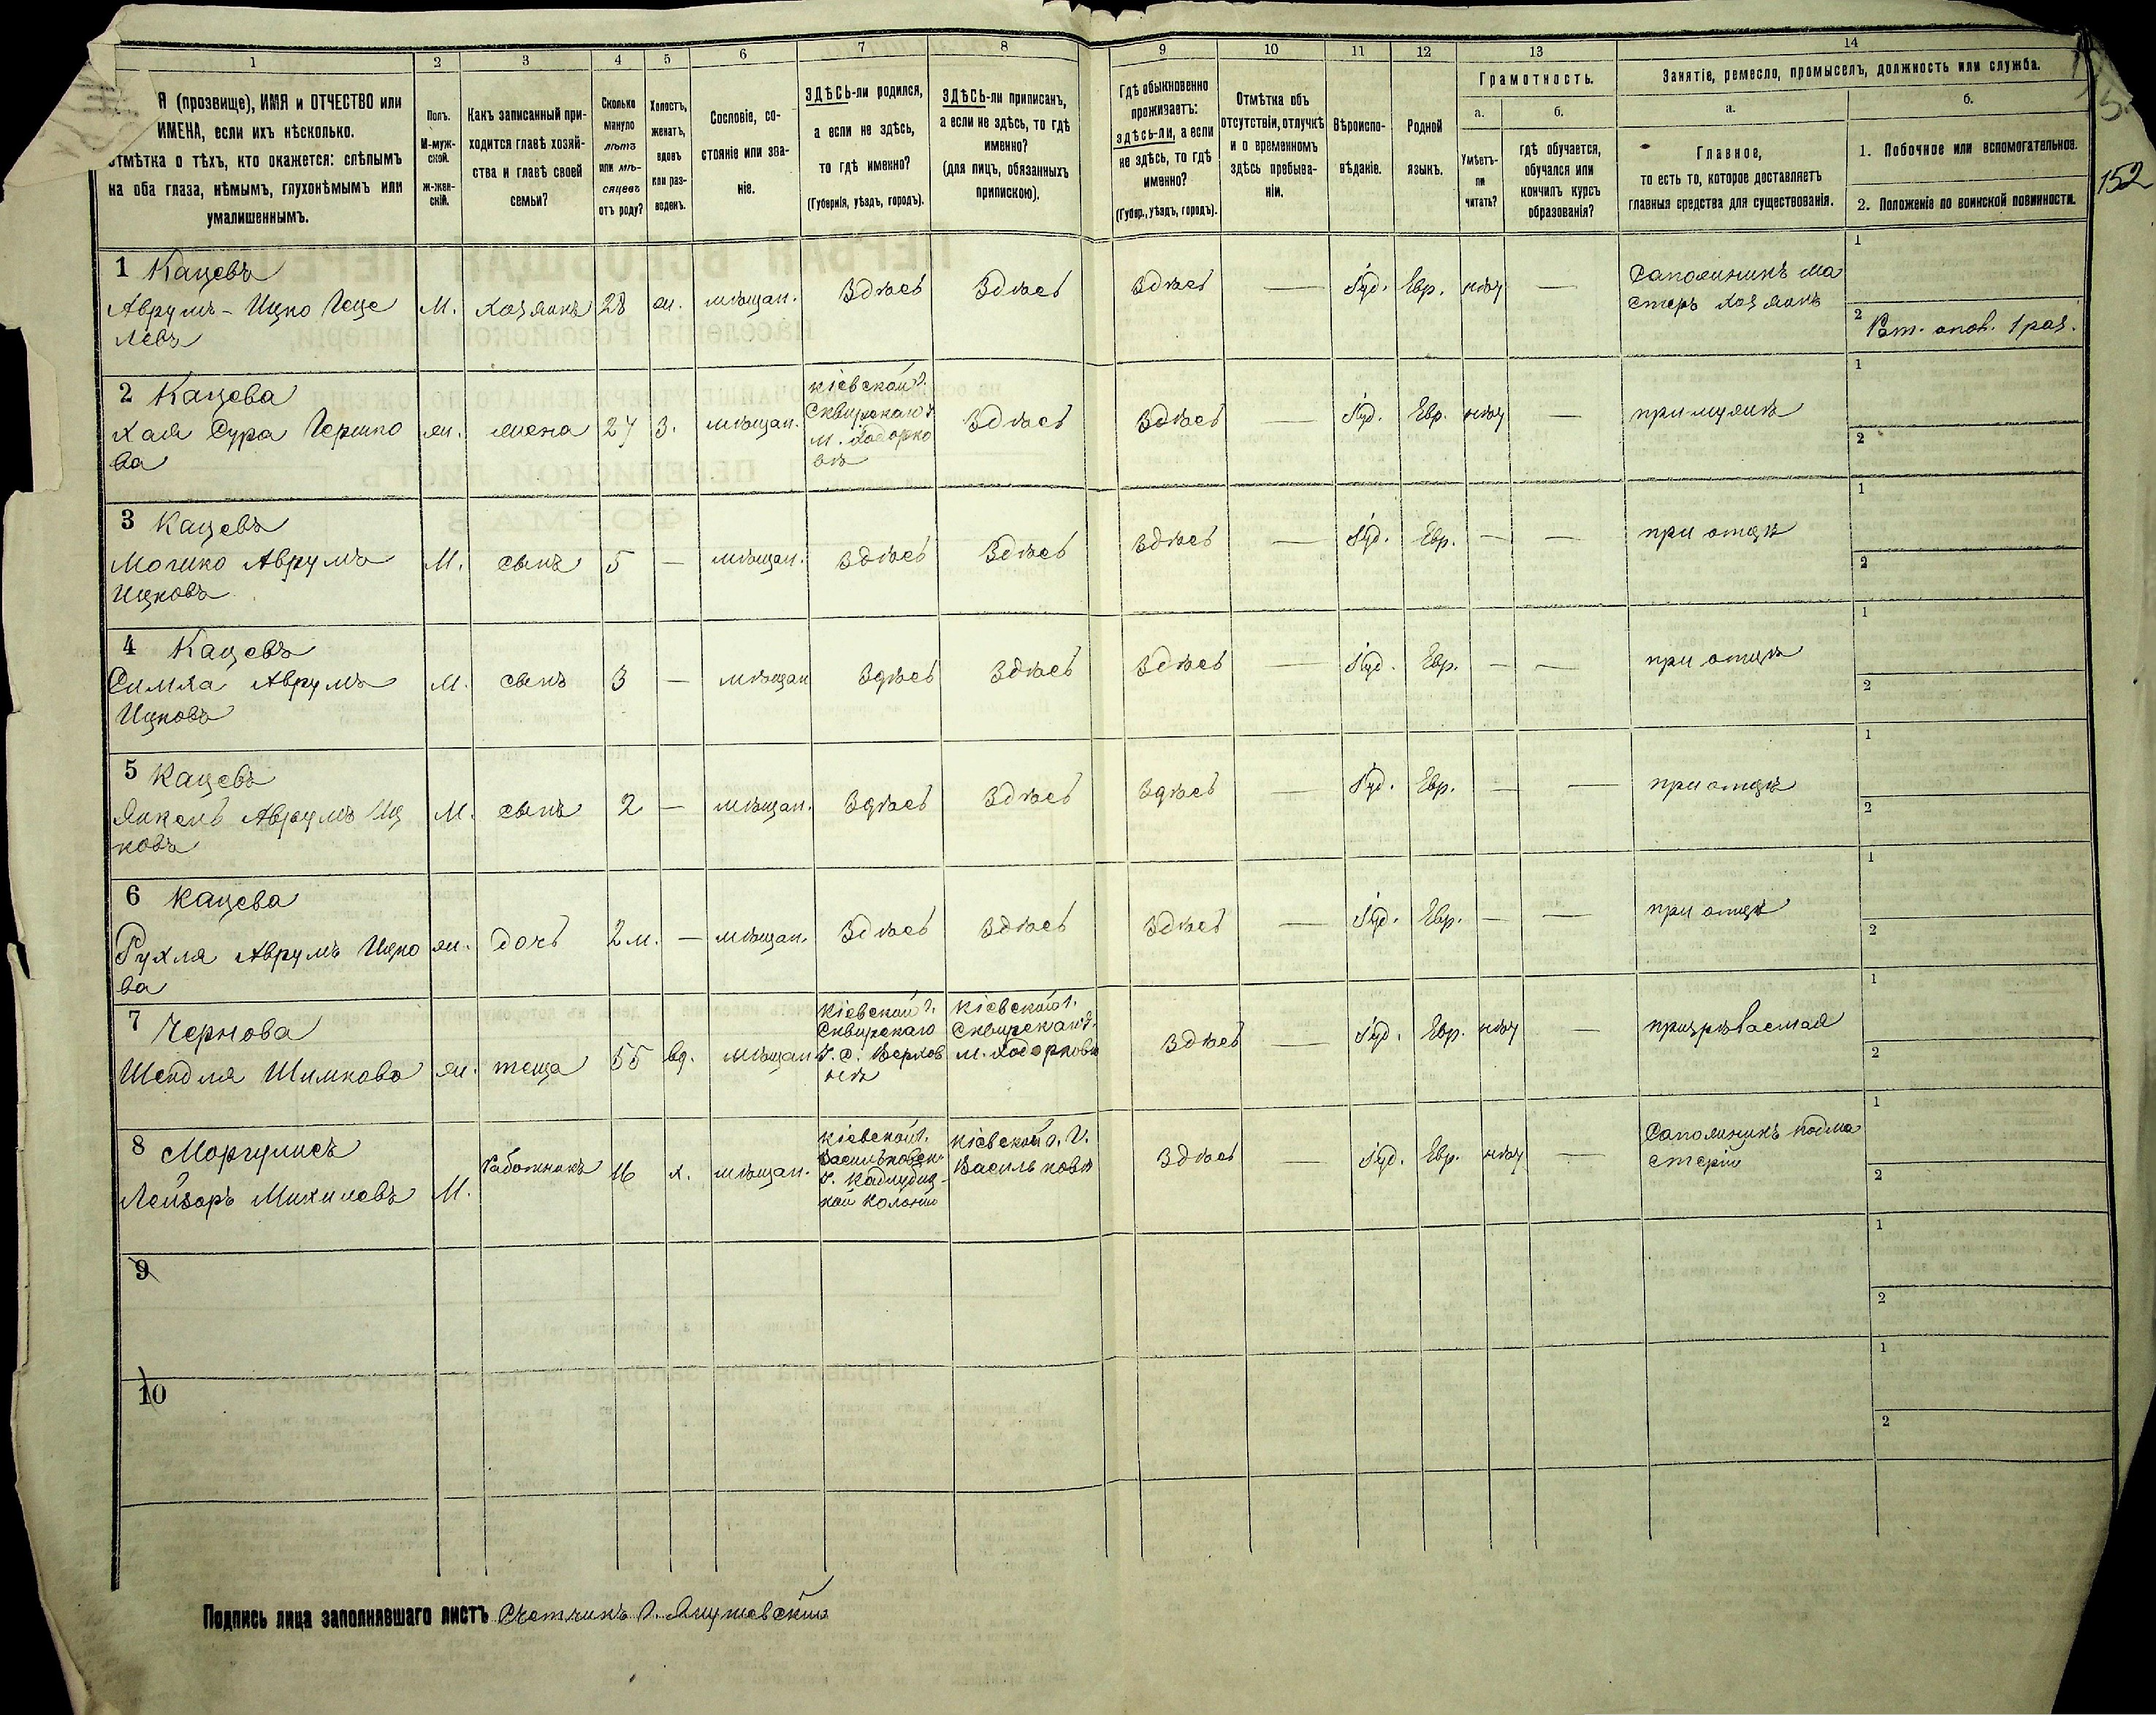 1 2 3 4 5 6 7 8 9 10 11 12 13 14
Я (прозвище), ИМЯ и ОТЧЕСТВО или
ИМЕНА, если ихъ нѣсколько.
отмѣтка о тѣхъ, кто окажется: слѣпымъ
на оба глаза, нѣмымъ, глухонѣмымъ или
умалишеннымъ.
Полъ.
М-муж-
ской.
Ж-жен-
скій.
Какъ записанный при-
ходится главѣ хозяй-
ства и главѣ своей
семьи?
Сколько
минуло
лѣтъ
или мѣ-
сяцевъ
отъ роду?
Холостъ,
женатъ,
вдовъ
или раз-
веденъ.
Сословіе, со-
стояніе или зва-
ніе.
ЗДѢСЬ-ли родился,
а если не здѣсь,
то гдѣ именно?
(Губернія, уѣздъ, городъ).
ЗДѢСЬ-ли приписанъ,
а если не здѣсь, то гдѣ
именно?
(для лицъ, обязанныхъ
припискою).
Гдѣ обыкновенно
проживаетъ:
здѣсь-ли, а если
не здѣсь, то гдѣ
именно?
(Губер., уѣздъ, городъ).
Отмѣтка объ
отсутствіи, отлучкѣ
и о временномъ
здѣсь пребыва-
ніи.
Вѣроиспо-
вѣданіе.
Родной
языкъ.
Грамотность.
а.
Умѣетъ-
ли
читать?
б.
гдѣ обучается,
обучался или
кончилъ курсъ
образованія?
Занятіе, ремесло, промыселъ, должность или служба.
а.
Главное,
то есть то, которое доставляетъ
главныя средства для существованія.
б.
1. Побочное или вспомогательное.
2. Положеніе по воинской повинности.
152
1 Кацевъ
Аврумъ-Ицко Геце
левъ
М. хозяинъ 28 ж. мѣщан. Здѣсь Здѣсь Здѣсь — Іуд. Евр. нѣт —
Сапожникъ ма
стеръ хозяинъ
1
2 Рат. опол. 1 раз.
2 Кацева
Хая Сура Гершко
ва
ж. жена 27 З. мѣщан.
Кіевской г.
Сквирскаго у.
м. Ходорко
вѣ
Здѣсь Здѣсь — Іуд. Евр. нѣт — при мужѣ
1
2
3 Кацевъ
Мошко Аврумъ
Ицковъ
М. сынъ 5 — мѣщан. Здѣсь Здѣсь Здѣсь — Іуд. Евр. — — при отцѣ
1
2
4 Кацевъ
Симха Аврумъ
Ицковъ
М. сынъ 3 — мѣщан Здѣсь Здѣсь Здѣсь — Іуд. Евр. — — при отцѣ
1
2
5 Кацевъ
Янкель Аврумъ Иц
ковъ
М. сынъ 2 — мѣщан. Здѣсь Здѣсь Здѣсь — Іуд. Евр. — — при отцѣ
1
2
6 Кацева
Рухля Аврумъ Ицко
ва
ж. дочь 2 м. — мѣщан. Здѣсь Здѣсь Здѣсь — Іуд. Евр. — — при отцѣ
1
2
7 Чернова
Шендля Шимкова
ж. теща 55 вд. мѣщан
Кіевской г.
Сквирскаго
У. с. Верхов
нѣ
Кіевской г.
Сквирскаго у.
м. Ходорковѣ
Здѣсь — Іуд. Евр. нѣт — призрѣваемая
1
2
8 Моргулисъ
Лейзоръ Михилевъ
М. Работникъ 16 х. мѣщан.
Кіевской г.
Васильковск.
У. Кадлубиц-
кой колоніи
Кіевской г. г.
Васильковѣ
Здѣсь — Іуд. Евр. нѣт —
Сапожникъ подма
стерій
1
2
9
1
2
10
1
2
Подпись лица заполнявшаго листъ Счетчикъ